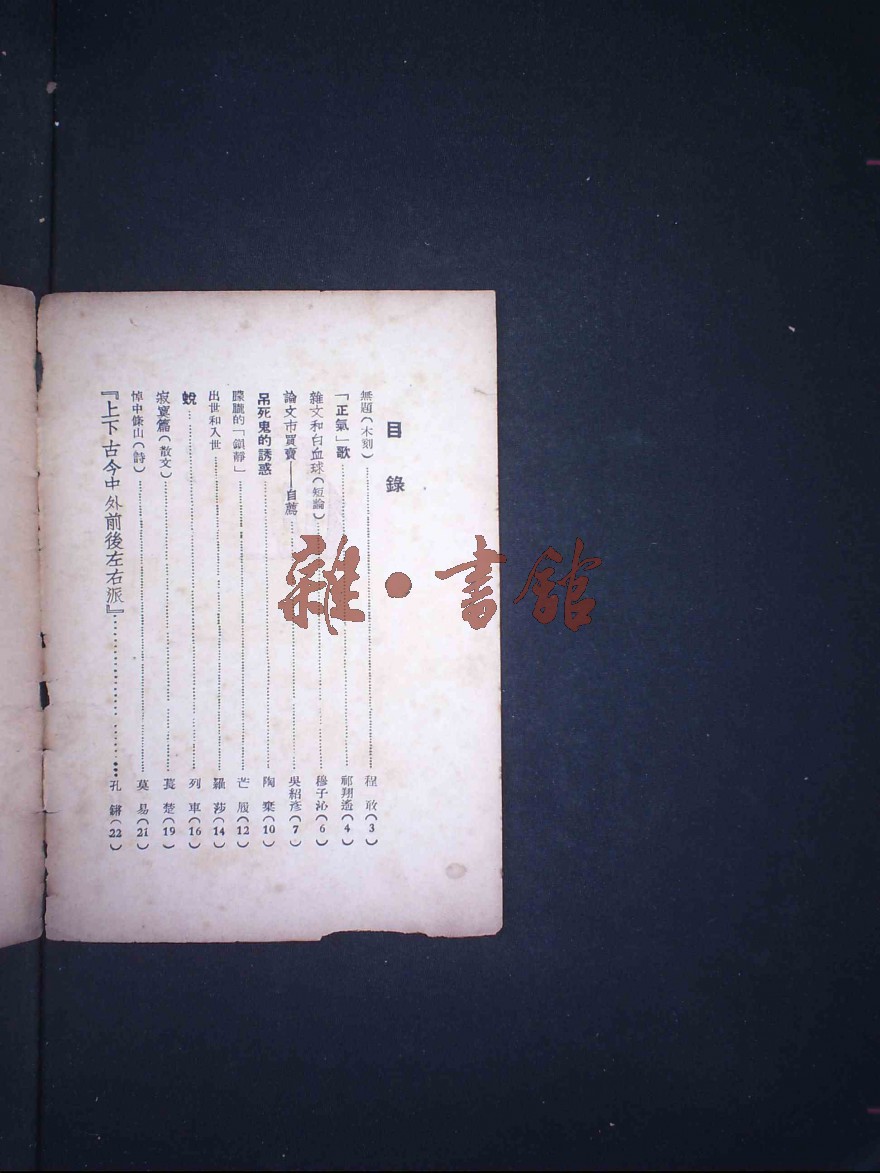 目錄
無題(木刻)……程敢(3)
「正氣」歌……祁翔遙(4)
雜文和白血球(短論)……穆子沁(6)
論文市買賣——自薦……吳紹彥(7)
吊死鬼的誘惑……陶棄(10)
朦朧的「鎮靜」……芒履(12)
出世和入世……羅莎(14)
蛻……列車(16)
寂寞篇(散文)……萇楚(19)
悼中條山(詩)……莫易(21)
『上下古今中外前後左右派』……孔鏘(22)
雜·書館